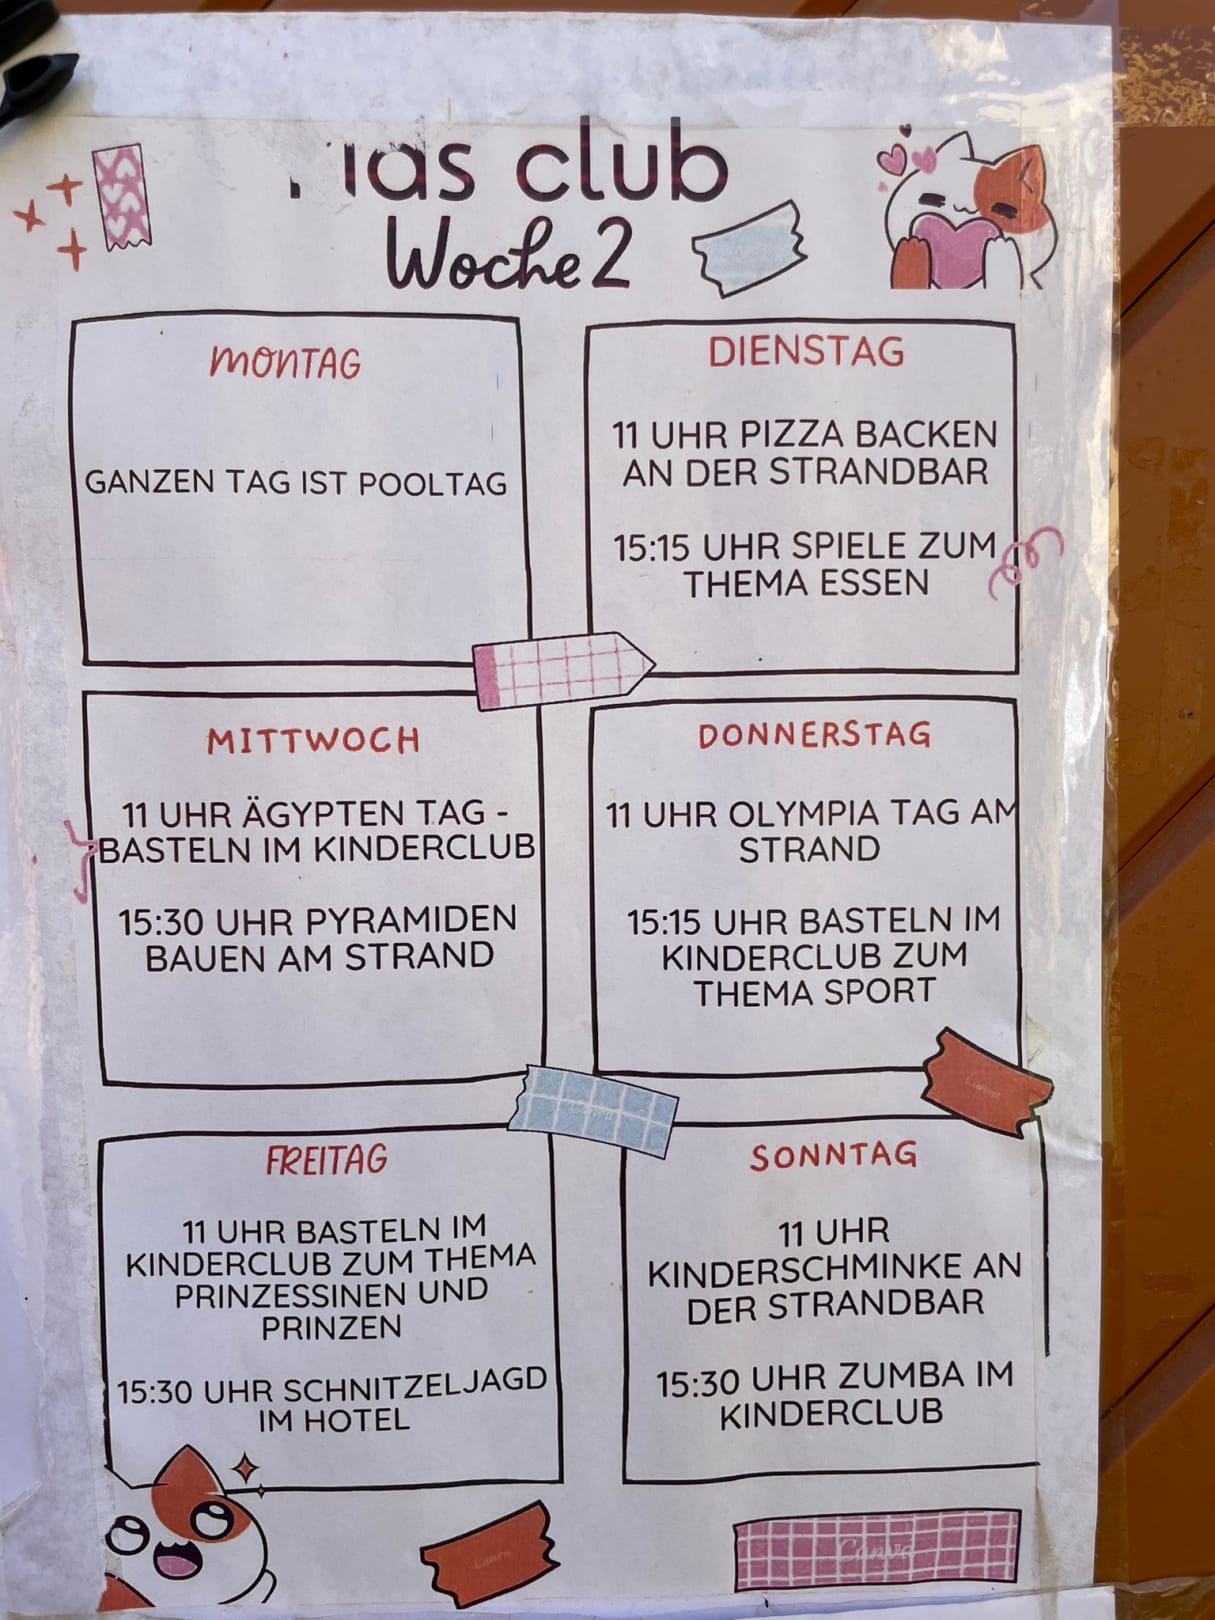 club
Woche 2
MONTAG
GANZEN TAG IST POOLTAG
DIENSTAG
11 UHR PIZZA BACKEN
AN DER STRANDBAR
15:15 UHR SPIELE ZUM
THEMA ESSEN
MITTWOCH
11 UHR ÄGYPTEN TAG -
BASTELN IM KINDERCLUB
15:30 UHR PYRAMIDEN
BAUEN AM STRAND
DONNERSTAG
11 UHR OLYMPIA TAG AM
STRAND
15:15 UHR BASTELN IM
KINDERCLUB ZUM
THEMA SPORT
FREITAG
11 UHR BASTELN IM
KINDERCLUB ZUM THEMA
PRINZESSINEN UND
PRINZEN
15:30 UHR SCHNITZELJAGD
IM HOTEL
SONNTAG
11 UHR
KINDERSCHMINKE AN
DER STRANDBAR
15:30 UHR ZUMBA IM
KINDERCLUB
Canva
Canva
Canva